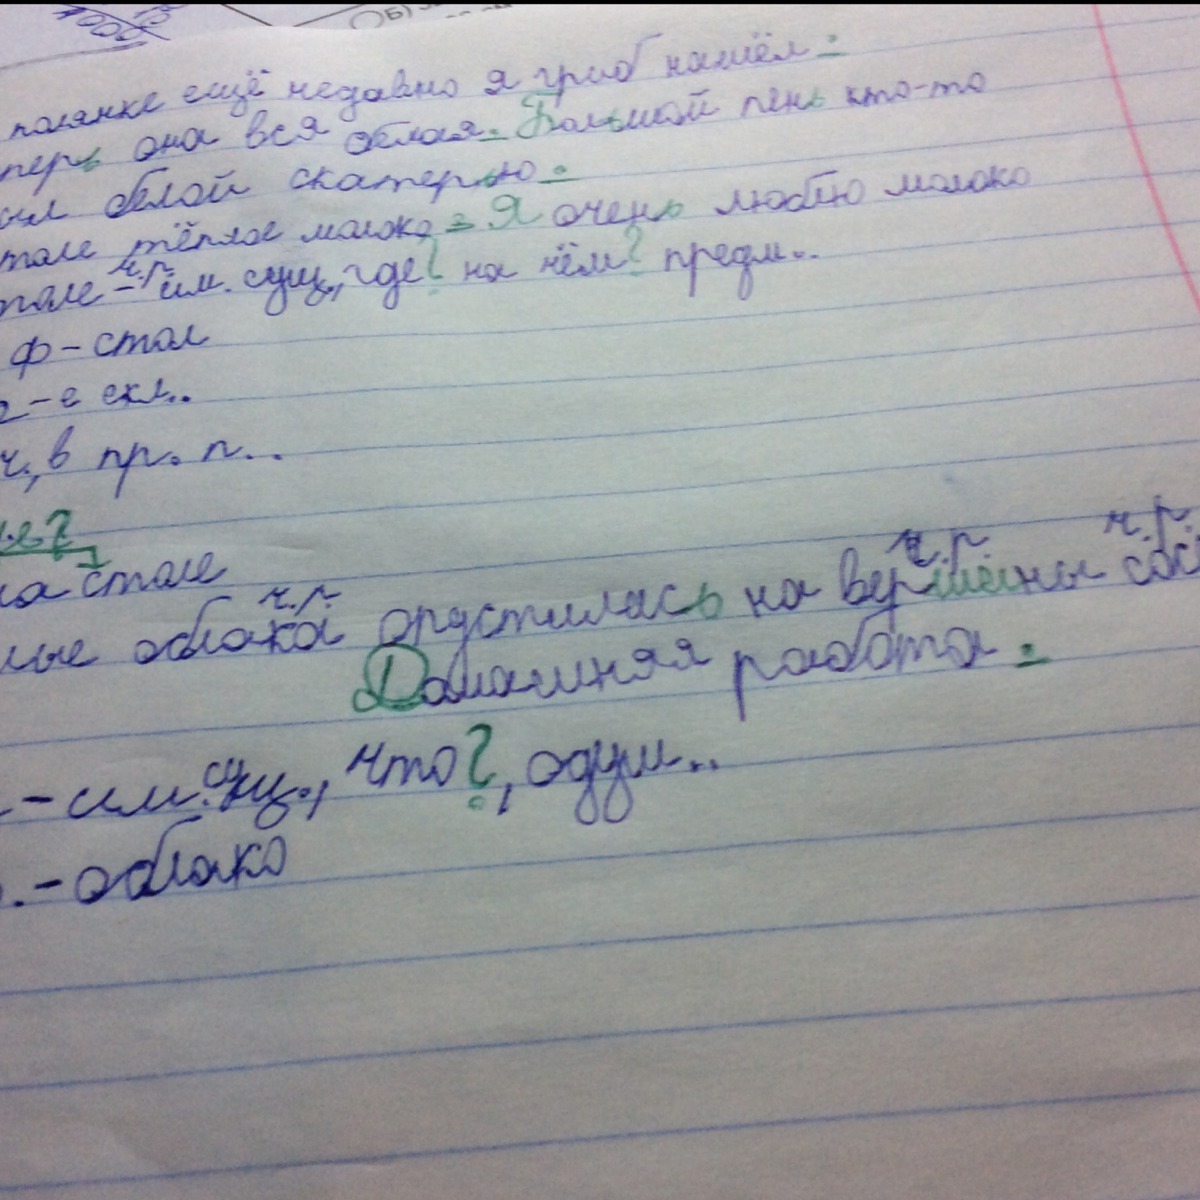 1000
Б)
полянке ещё недавно я гриб нашёл.
перь она вся белая. Большой пень кто-то
ыл белой скатерью.
толе тёплое молоко. Я очень люблю молоко
ч.р.
толе - им. сущ., где? на чём? предм..
ф - стол
2-е скл..
ч., в пр. п...
на столе
ч.р. ч.р. ч.р.
лые облака опустилась на вершины сос
Домашняя работа.
- им. сущ., что?, одуш..
. - облако